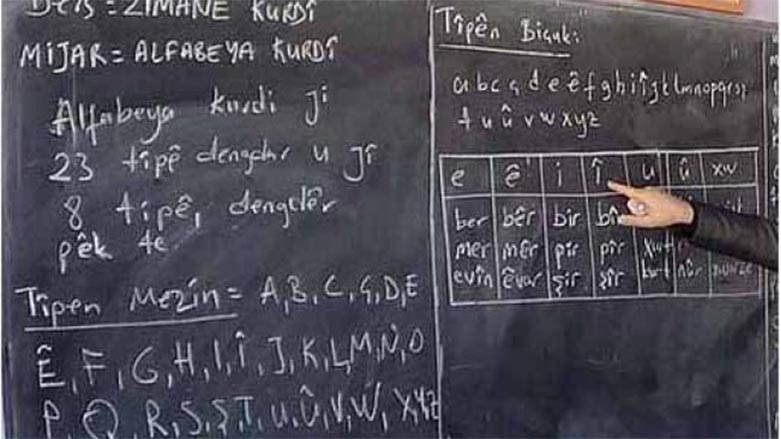 Ders = ZIMANE KURDÎ
MIJAR = ALFABEYA KURDÎ
Alfabeya kurdi ji
23 tîpê dengdar u jî
8 tîpê, dengdêr
pêk te
Tîpen Mezin = A, B, C, Ç, D, E
Ê, F, G, H, I, Î, J, K, L, M, N, O
P, Q, R, S, Ş, T, U, Û, V, W, X, Y, Z
Tîpên Biçuk:
a b c ç d e ê f g h i î j k l m n o p q r s ş
t u û v w x y z
e ê i î u û xw
ber bêr bir
mer mêr pir pîr
evîn êvar şir şîr kurt nûr